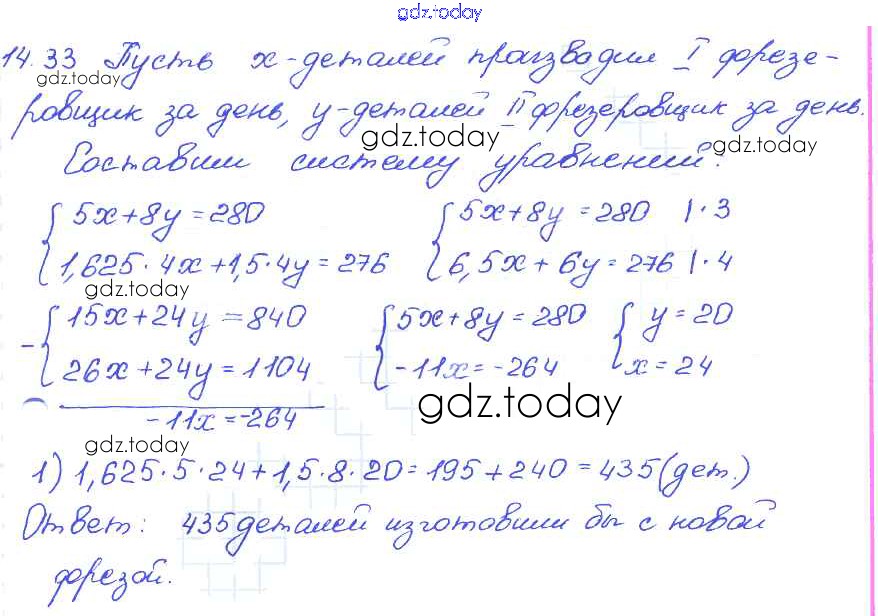 gdz.today
14.33 Пусть x-деталей производил I фрезе-
gdz.today
ровщик за день, y-деталей II фрезеровщик за день.
gdz.today gdz.today
Составим систему уравнений:
{ 5x+8y=280 { 5x+8y=280 |·3
{ 1,625·4x+1,5·4y=276 { 6,5x+6y=276 |·4
gdz.today
- { 15x+24y=840 { 5x+8y=280 { y=20
{ 26x+24y=1104 { -11x=-264 { x=24
gdz.today
-11x=-264
gdz.today
1) 1,625·5·24+1,5·8·20=195+240=435(дет.)
Ответ: 435 деталей изготовили бы с новой
фрезой.